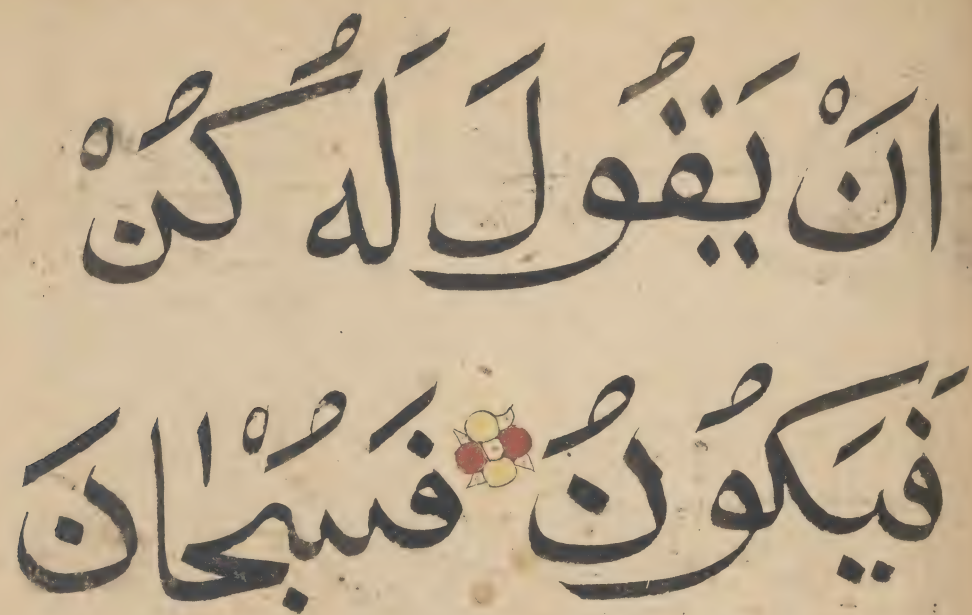 انْ يَقُولَ لَهُ كُنْ
فَيَكُونُ فَسُبْحٰانَ